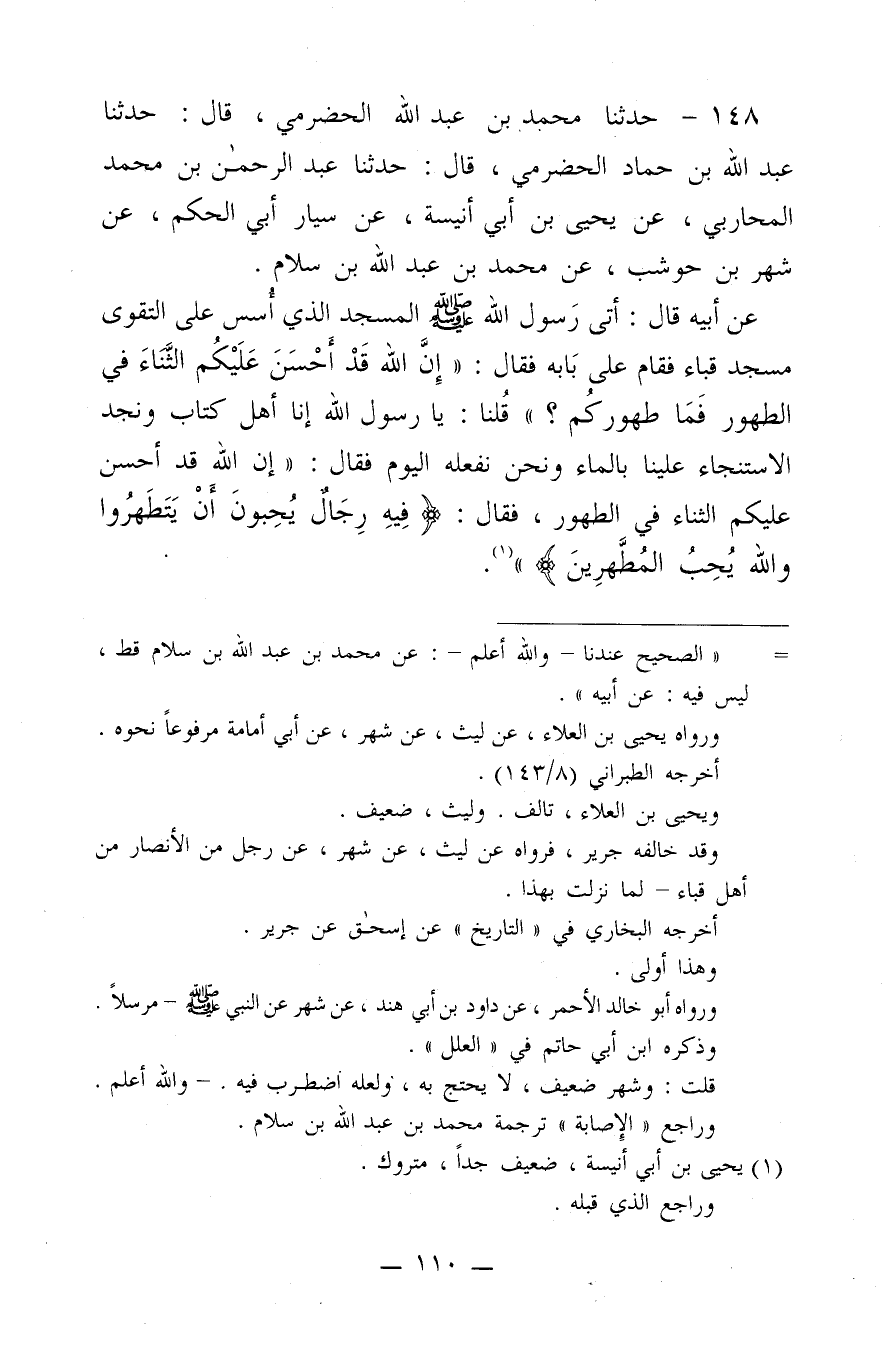 ١٤٨ - حدثنا محمد بن عبد الله الحضرمي ، قال : حدثنا
عبد الله بن حماد الحضرمي ، قال : حدثنا عبد الرحمٰن بن محمد
المحاربي ، عن يحيى بن أبي أنيسة ، عن سيار أبي الحكم ، عن
شهر بن حوشب ، عن محمد بن عبد الله بن سلام .
عن أبيه قال : أتى رَسول الله ﷺ المسجد الذي أُسس على التقوى
مسجد قباء فقام على بَابه فقال : « إِنَّ الله قَدْ أَحْسَنَ عَلَيْكُم الثَّنَاءَ في
الطهور فَمَا طهوركُم ؟ » قُلنا : يا رسول الله إنا أهل كتاب ونجد
الاستنجاء علينا بالماء ونحن نفعله اليوم فقال : « إن الله قد أحسن
عليكم الثناء في الطهور ، فقال : ﴿ فِيهِ رِجَالٌ يُحِبونَ أَنْ يَتَطَهرُوا
والله يُحِبُ المُطَّهرِينَ ﴾ »(١).
= « الصحيح عندنا - والله أعلم - : عن محمد بن عبد الله بن سلام قط ،
ليس فيه : عن أبيه » .
ورواه يحيى بن العلاء ، عن ليث ، عن شهر ، عن أبي أمامة مرفوعاً نحوه .
أخرجه الطبراني (١٤٣/٨) .
ويحيى بن العلاء ، تالف . وليث ، ضعيف .
وقد خالفه جرير ، فرواه عن ليث ، عن شهر ، عن رجل من الأنصار من
أهل قباء - لما نزلت بهذا .
أخرجه البخاري في « التاريخ » عن إسحٰق عن جرير .
وهذا أولى .
ورواه أبو خالد الأحمر ، عن داود بن أبي هند ، عن شهر عن النبي ﷺ - مرسلاً .
وذكره ابن أبي حاتم في « العلل » .
قلت : وشهر ضعيف ، لا يحتج به ، ولعله اضطرب فيه . - والله أعلم .
وراجع « الإصابة » ترجمة محمد بن عبد الله بن سلام .
(١) يحيى بن أبي أنيسة ، ضعيف جداً ، متروك .
وراجع الذي قبله .
— ١١٠ —